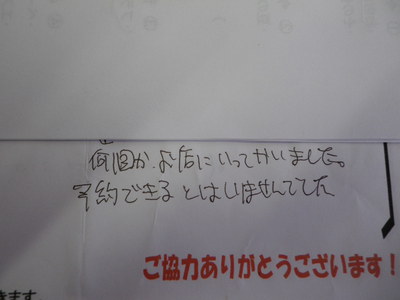 何回か、お店にいってかいました。
予約できるとはしりませんでした
ご協力ありがとうございます!
きます